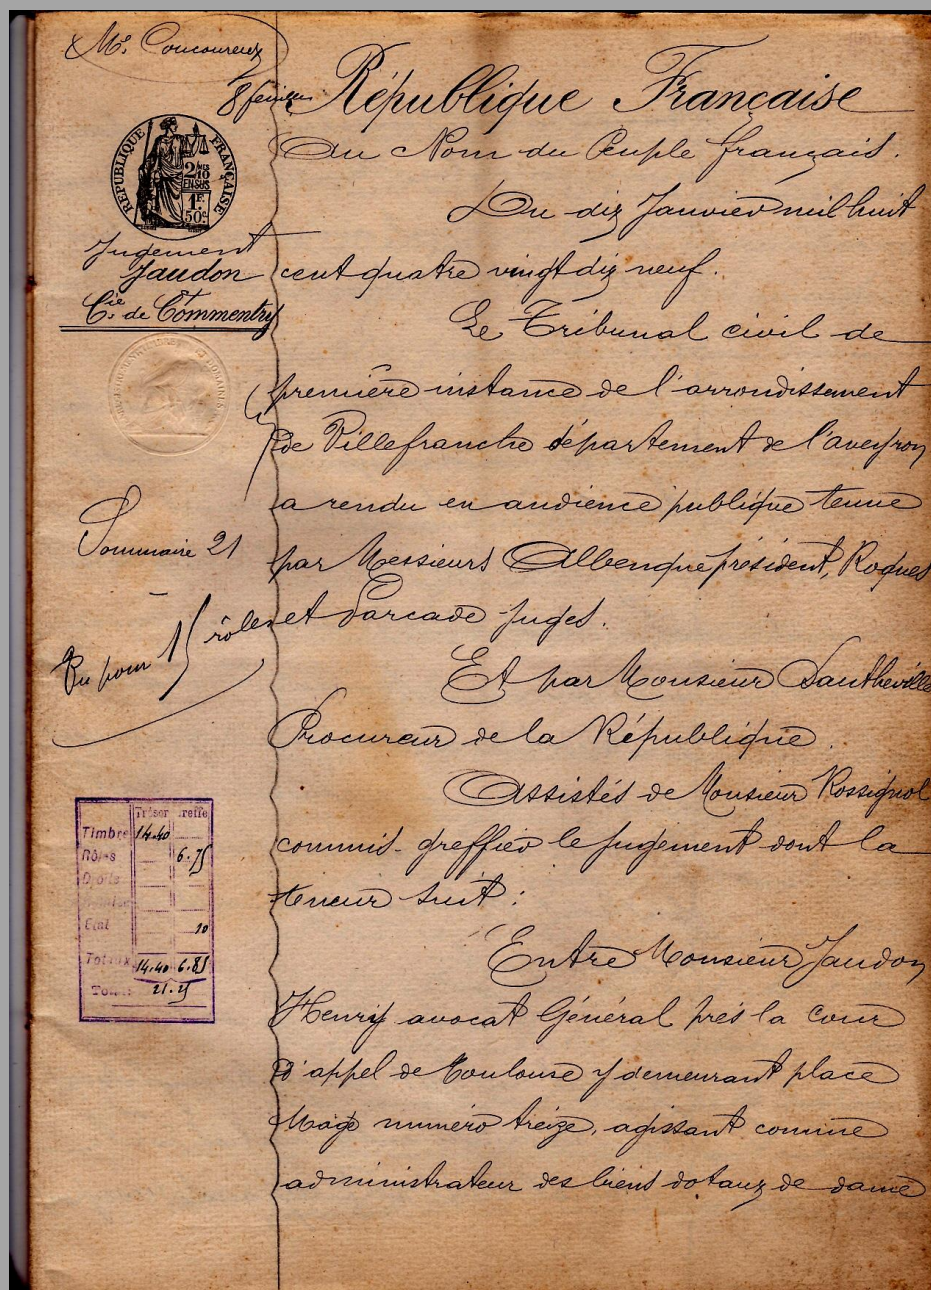 Me. Coucoureux
8 février
RÉPUBLIQUE FRANÇAISE
2/10 MES
EN SUS
1F.
50c
Jugement
Jaudon
Cie. de Commentry
Sommaire 21
Vu pour 15 rôles
Trésor Greffe
Timbre 14.40
Rôles 6.75
Droits
Etat 10
Totaux 14.40 6.85
Total 21.25
République Française
Au Nom du Peuple français
Du dix Janvier mil huit
cent quatre vingt dix neuf.
Le Tribunal civil de
première instance de l'arrondissement
de Villefranche département de l'aveyron
a rendu en audience publique tenue
par Messieurs Albenque président, Roques
et Darcade juges.
Et par Monsieur
Procureur de la République.
Assistés de Monsieur Rossignol
commis-greffier le jugement dont la
teneur suit :
Entre Monsieur Jaudon
Henry avocat Général près la cour
d'appel de Toulouse y demeurant place
Mage numéro treize, agissant comme
administrateur des biens dotaux de dame